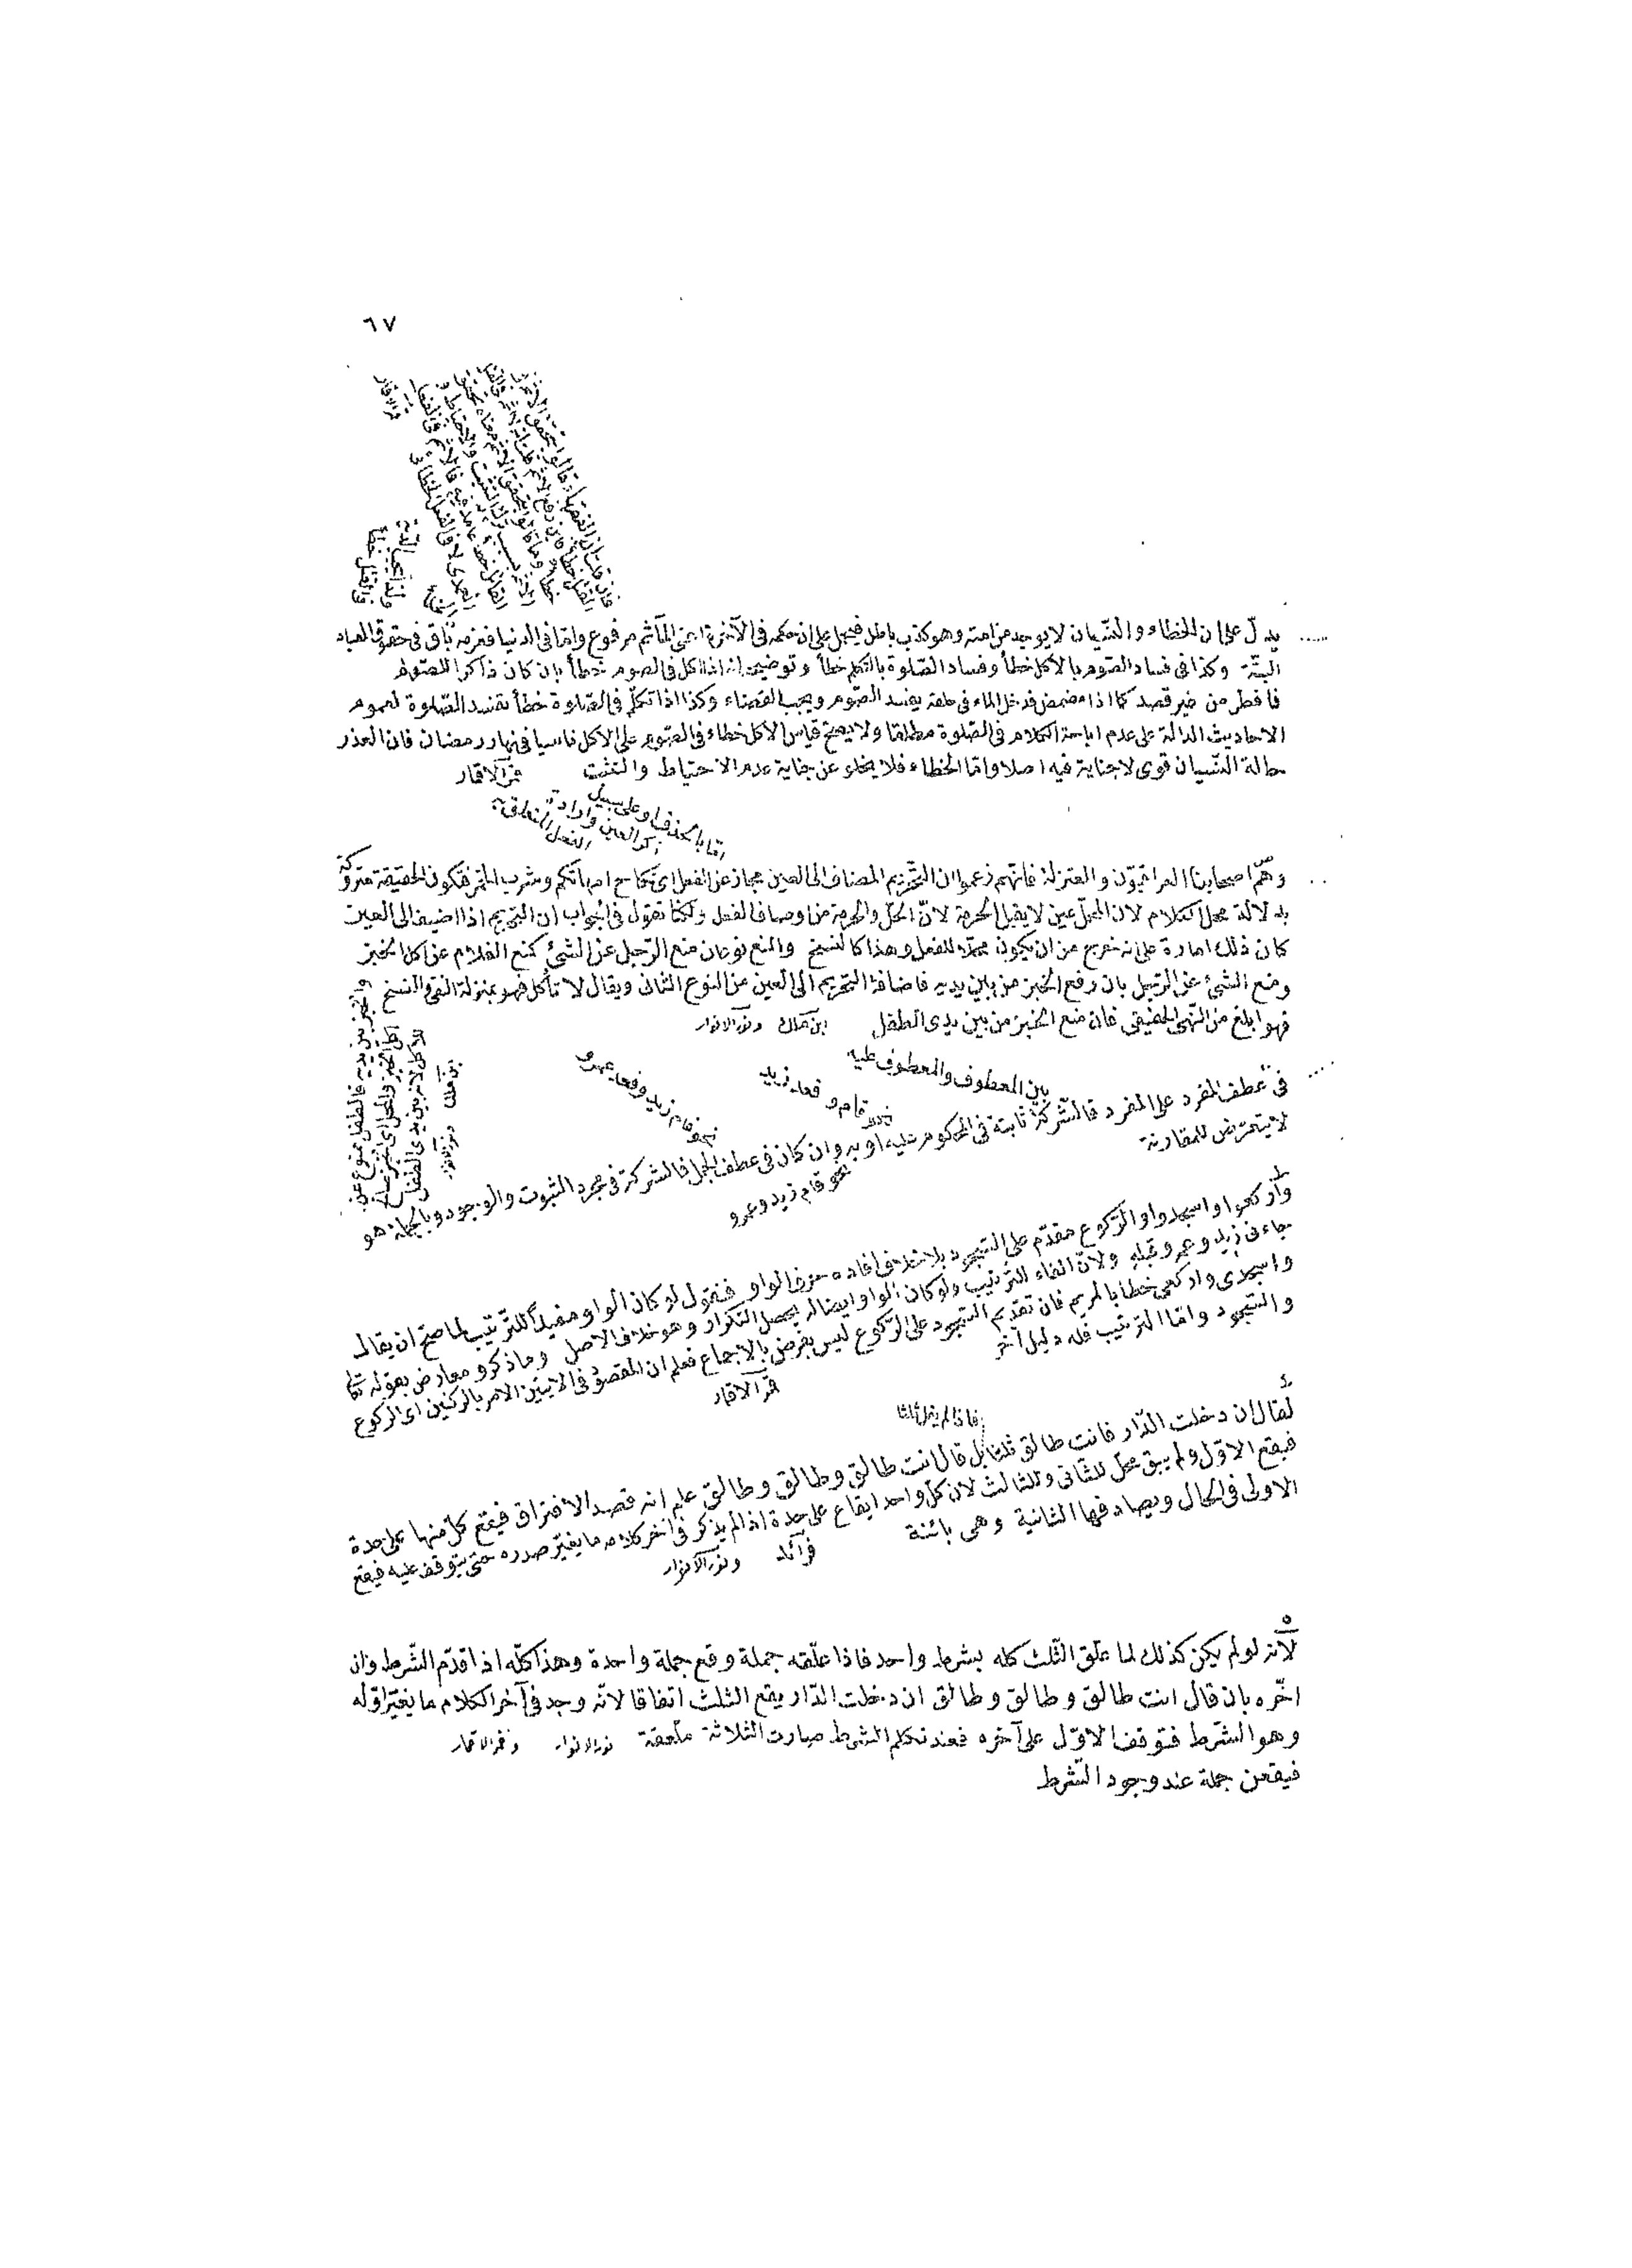 ٦٧
يدل على ان الخطاء والنسيان لا يوجد من امته وهو كذب باطل فيحمل على ان حكمه فى الآخرة اعنى المآثم مرفوع واما فى الدنيا فغرمه باق فى حقوق العباد
البتّة وكذا فى فساد الصّوم بالاكل خطأ وفساد الصّلوة بالتكلم خطأ وتوضيحه انه اذا اكل فى الصوم خطأ بان كان ذاكرا للصّوم
فافطر من غير قصد كما اذا مضمض فدخل الماء فى حلقه يفسد الصّوم ويجب القضاء وكذا اذا تكلّم فى الصّلوة خطأ تفسد الصّلوة لعموم
الاحاديث الدالة على عدم اباحة الكلام فى الصّلوة مطلقا ولا يصح قياس الاكل خطاء فى الصّوم على الاكل ناسيا فى نهار رمضان فان العذر
حالة النّسيان قوى لا جناية فيه اصلا وامّا الخطاء فلا يخلو عن جناية عدم الاحتياط والتثبت قمر الاقمار
امّا بالحذف او على سبيل
ذكر العين وارادة
الفعل
وهمّ اصحابنا العراقيّون والمعتزلة فانّهم زعموا ان التّحريم المضاف الى العين مجاز عن الفعل اى نكاح امهاتكم وشرب الخمر فتكون الحقيقة متروكة
بدلالة محل الكلام لان المحلّ عين لا يقبل الحرمة لانّ الحلّ والحرمة من اوصاف الفعل ولكنا نقول فى الجواب ان التحريم اذا اضيف الى العين
كان ذلك امارة على انه خرج من ان يكون محلا للفعل وهذا كالنسخ والمنع نوعان منع الرّجل عن الشئ كمنع الغلام عن اكل الخبز
ومنع الشئ عن الرّجل بان رفع الخبز من بين يديه فاضافة التحريم الى العين من النوع الثانى ويقال لا تأكل فهو بمنزلة النفى والنسخ
فهو ابلغ من النّهى الحقيقى فان منع الخبز من بين يدى الطفل ابن ملك ونور الانوار
بين المعطوف والمعطوف عليه
نحو قام وقعد زيد
نحو قام زيد وقعد عمرو
فى عطف المفرد على المفرد فالشّركة ثابتة فى المحكوم عليه او به وان كان فى عطف الجمل فالشركة فى مجرد الثبوت والوجود وبالجملة هو
لا يتعرّض للمقارنة
نحو قام زيد وعمرو
واركعوا واسجدوا والرّكوع مقدّم على السّجود بلا خلاف افاده حرف الواو فنقول لو كان الواو مفيدا للترتيب لما صحّ ان يقال
جاءنى زيد وعمرو قبله ولانّ الفاء للتّرتيب ولو كان الواو ايضا له يحصل التكرار وهو خلاف الاصل وما ذكر ومعارض بقوله تعالى
واسجدى واركعى خطابا لمريم فان تقديم السّجود على الرّكوع ليس بفرض بالاجماع فعلم ان المقصود فى الآيتين الامر بالركنين اى الركوع
والسّجود وامّا الترتيب فله دليل آخر قمر الاقمار
فاذا لم يقل ثلثا
لقال ان دخلت الدّار فانت طالق ثلثا بل قال انت طالق وطالق وطالق علم انه قصد الافتراق فيقع كل منها على حدة
فيقع الاوّل ولم يبق محلّ للثّانى وللثالث لانّ كلّ واحد ايقاع على حدة اذا لم يذكر فى آخر كلامه ما يغيّر صدره حتى يتوقف عليه فيقع
الاولى فى الحال ويصادفها الثانية وهى بائنة فرائد ونور الانوار
لانّه لو لم يكن كذلك لما علّق الثّلث كله بشرط واحد فاذا علّقه جملة وقع جملة واحدة وهذا كلّه اذا قدّم الشّرط وان
اخّره بان قال انت طالق وطالق وطالق ان دخلت الدّار يقع الثلث اتفاقا لانّه وجد فى آخر الكلام ما يغيّر اوّله
وهو الشّرط فتوقف الاوّل على آخره فعند تكلم الشّرط صارت الثلاثة ملّعقة نور الانوار وقمر الاقمار
فيقعن جملة عند وجود الشّرط